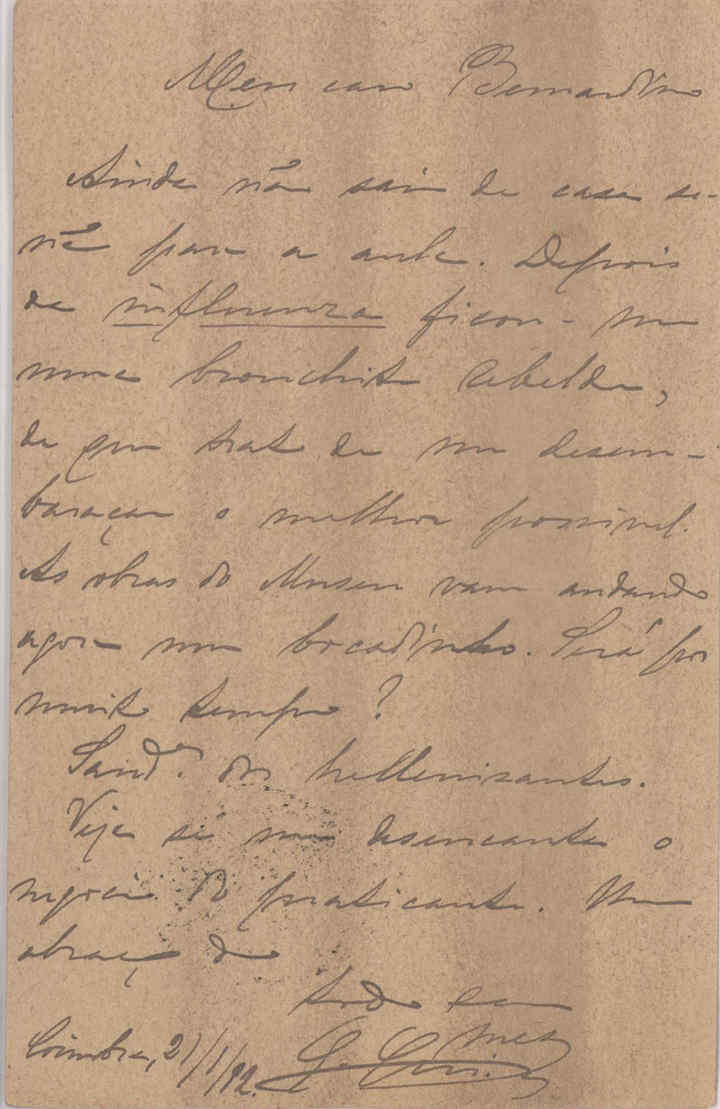 Meu caro Bernardino
Ainda não sahi de casa se-
não para a aula. Depois
da influenza ficou-me
uma bronchite rebelde,
de que trato de me desem-
baraçar o melhor possivel.
As obras do Museu vam andando
agora um bocadinho. Será por
muito tempo?
Saud.es dos hellenisantes.
Veja se me desencanta o
negocio do praticante. Um
abraço do
todo seu
Coimbra, 21/1/92.